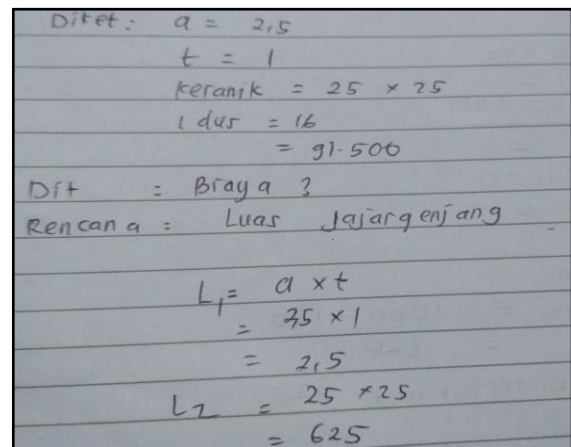 Diket : a = 2,5
t = 1
keramik = 25 × 25
1 dus = 16
= 91.500
Dit = Braya ?
Rencana = Luas Jajargenjang
L1 = a × t
= 2,5 × 1
= 2,5
L2 = 25 × 25
= 625